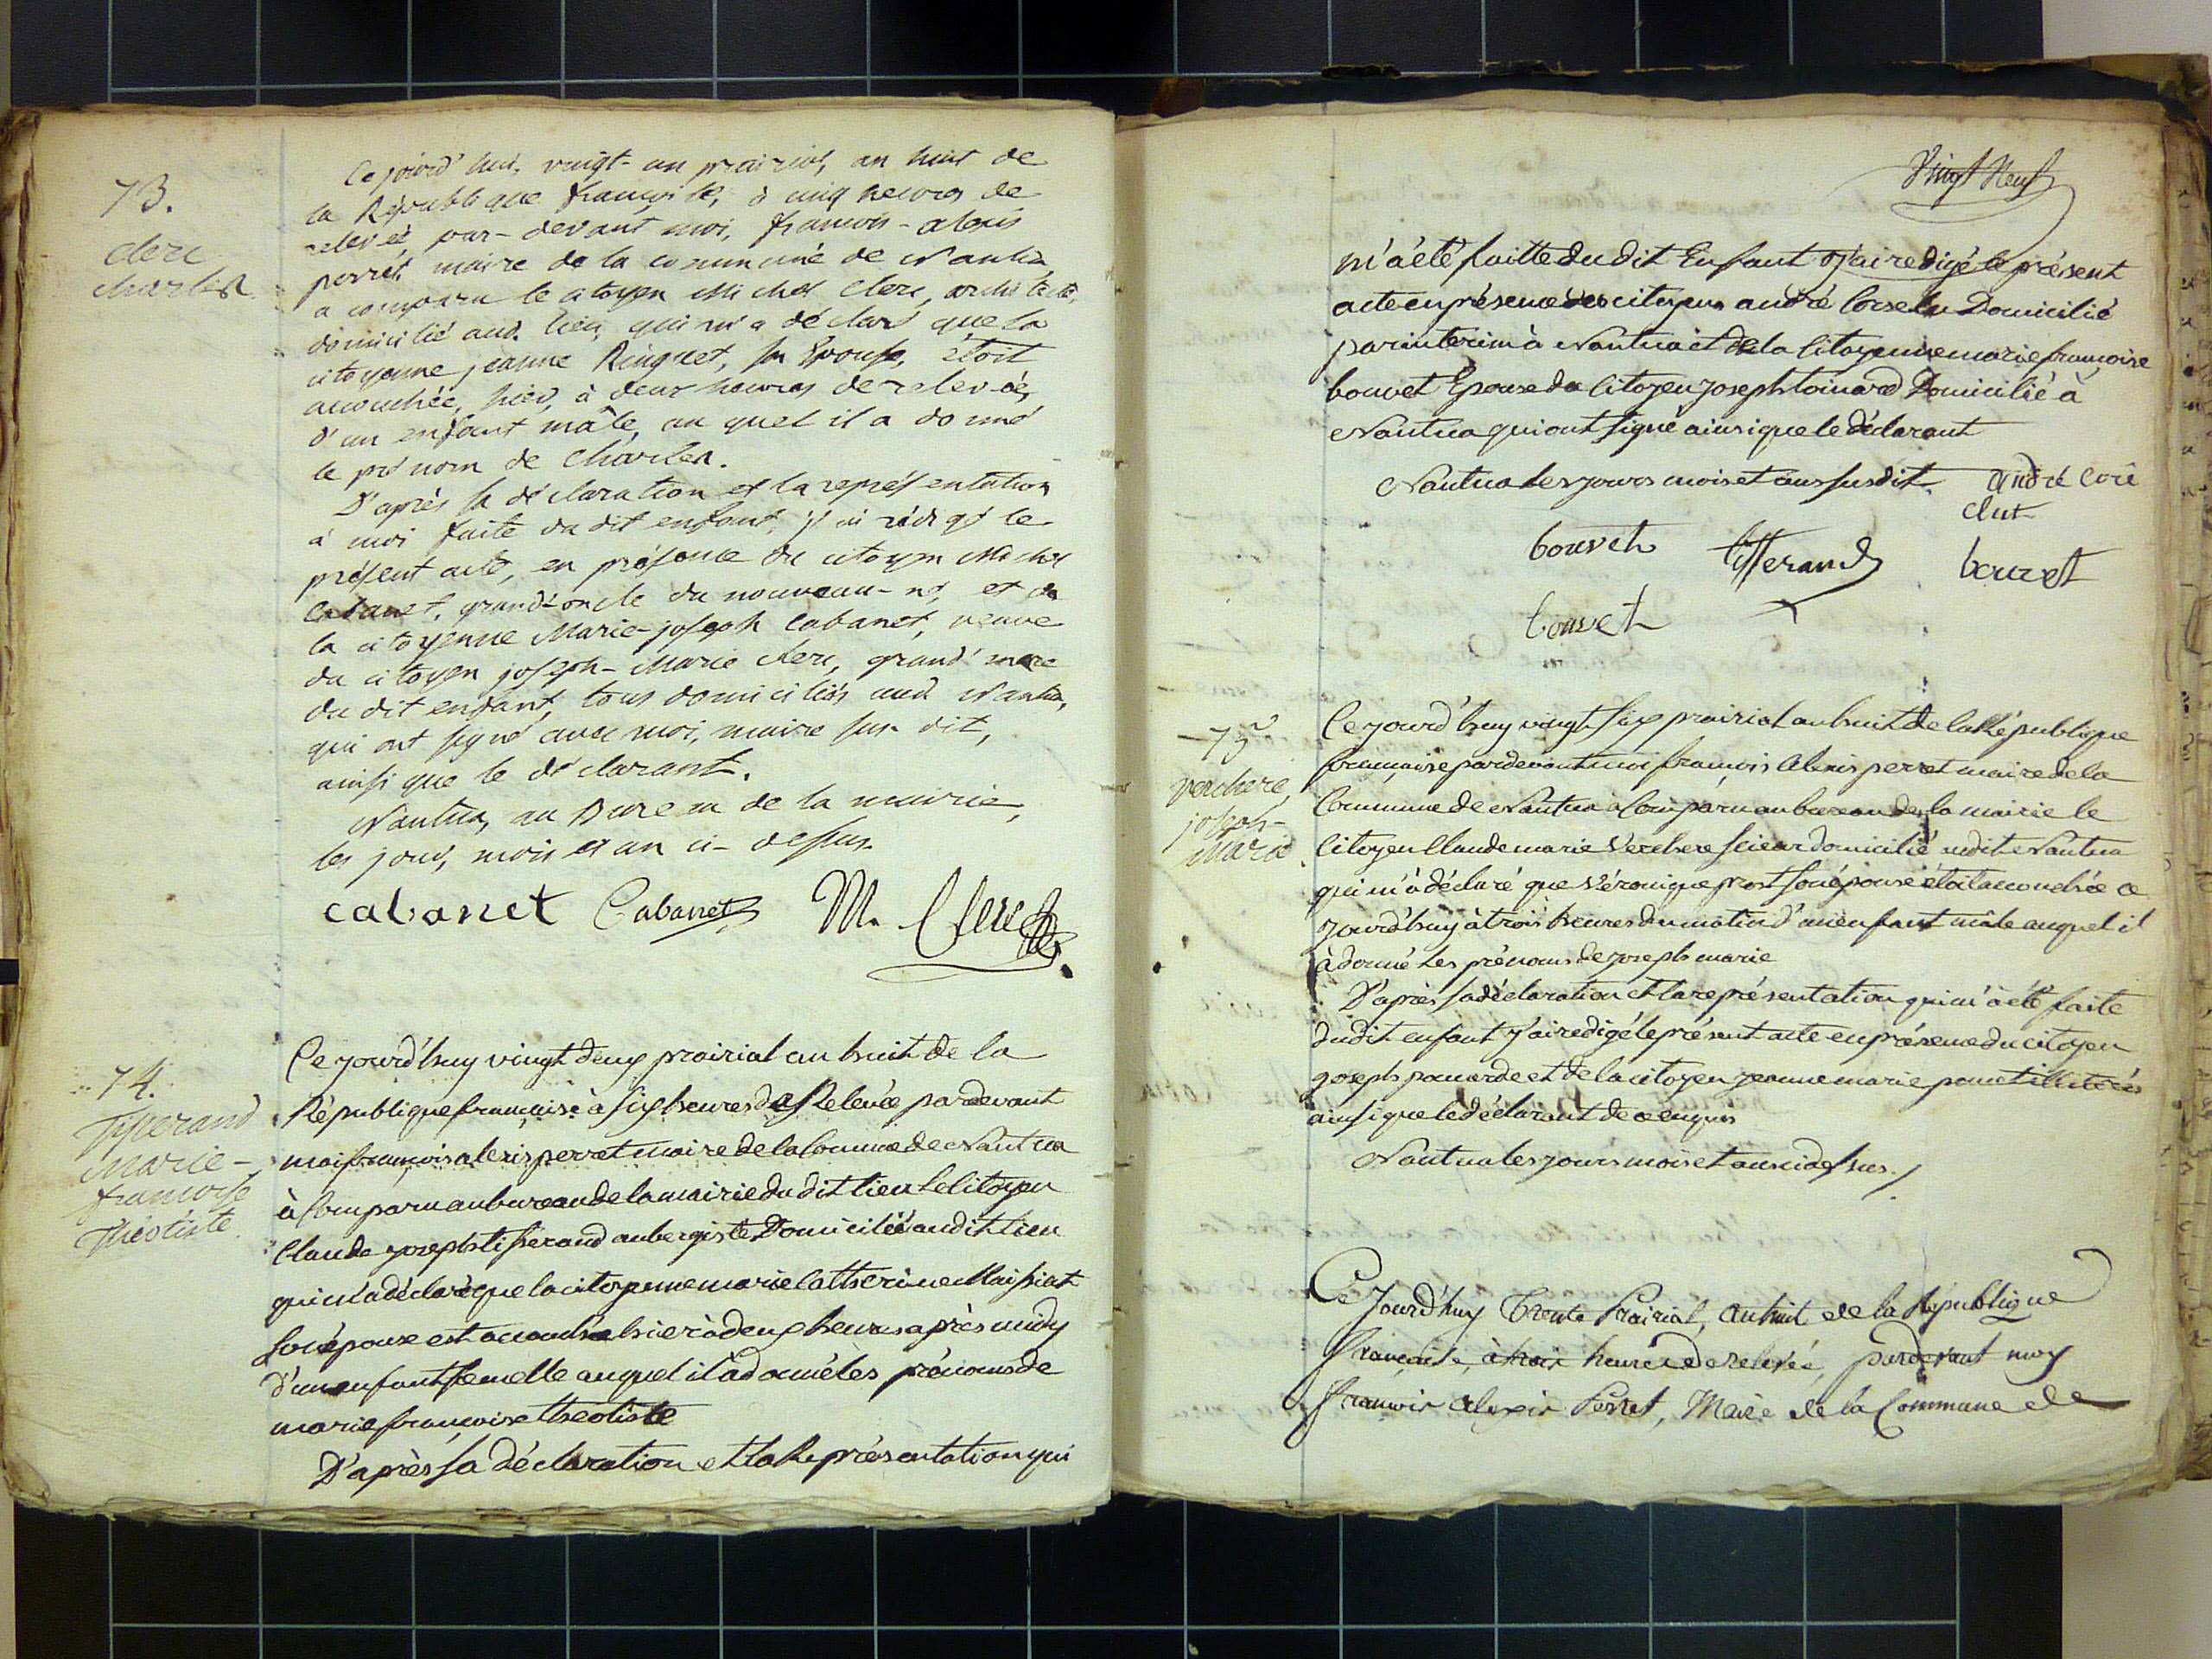 73.
Clerc
Charles
Ce jourd'hui, vingt-un prairial, an huit de
la République françoise, à cinq heures de
relevée, par-devant moi, françois-alexis
perret maire de la commune de Nantua
a comparu le citoyen Michel Clerc, architecte,
domicilié aud. lieu, qui m'a déclaré que la
citoyenne jeanne Ringuet, son Epouse, étoit
accouchée, hier, à deux heures de relevée,
d'un enfant mâle, au quel il a donné
le prénom de Charles.
D'après sa déclaration et la représentation
à moi faite du dit enfant, j'ai rédigé le
présent acte, en présence du citoyen Michel
Cabanet, grand-oncle du nouveau-né, et de
la citoyenne Marie-joseph Cabanet, veuve
du citoyen joseph-Marie Clerc, grand'mere
du dit enfant, tous domiciliés aud. Nantua,
qui ont signé avec moi, maire sus-dit,
ainsi que le déclarant.
Nantua, au Bureau de la mairie,
les jour, mois et an ci-dessus.
cabanet Cabanet M. Clerc
74.
Tisserand
Marie-
françoise
Théotiste
Ce jourd'huy vingt deux prairial an huit de la
République francaise à six heures de Relevée pardevant
moi françois alexis perret maire de la Commune de Nantua
à Comparu au bureau de la mairie du dit lieu Le Citoyen
Claude joseph tisserand aubergiste Domicilié audit lieu
qui m'a déclaré que la citoyenne marie Catherine Maissiat
son épouse est accouchée hier à deux heures après midy
d'un enfant femelle auquel il à donné les prénoms de
marie françoise theotiste
D'après sa déclaration et la Représentation qui
Vingt Neuf
m'a été faitte du dit Enfant J'ai redigé le présent
acte en présence des citoyens andré Corcelut Domicilié
par interim à Nantua et de la Citoyenne marie françoise
bouvet Epouse du Citoyen joseph toinard Domicilié à
Nantua qui ont signé ainsi que le déclarant
Nantua les jours mois et ans susdit. andré corc
clut
bouvet tisserand bouvet
bouvet
75
verchere
joseph-
marie
Ce jourd'huy vingt six prairial an huit de la République
francaise pardevant moi françois Alexis perret maire de la
Commune de Nantua à Comparu au bureau de la mairie le
Citoyen Claude marie Verchere scieur domicilié audit Nantua
qui m'à déclaré que Véronique prost son épouse étoit accouchée ce
jourd'huy à trois heures du matin d'un enfant mâle auquel il
à donné Les prénoms de joseph marie
D'après sa déclaration et la représentation qui m'à été faite
dudit enfant j'ai redigé le présent acte en présence du citoyen
joseph ponarde et de la citoyen jeanne marie poncet illitérés
ainsi que le déclarant de ce enquis
Nantua les jours mois et ans ci dessus.
Ce Jourd'huy Trente Prairial, an huit de la République
Françaiſe, à trois heures de relevée, pardevant moy
françois alexis Perret, Maire de la Commune de